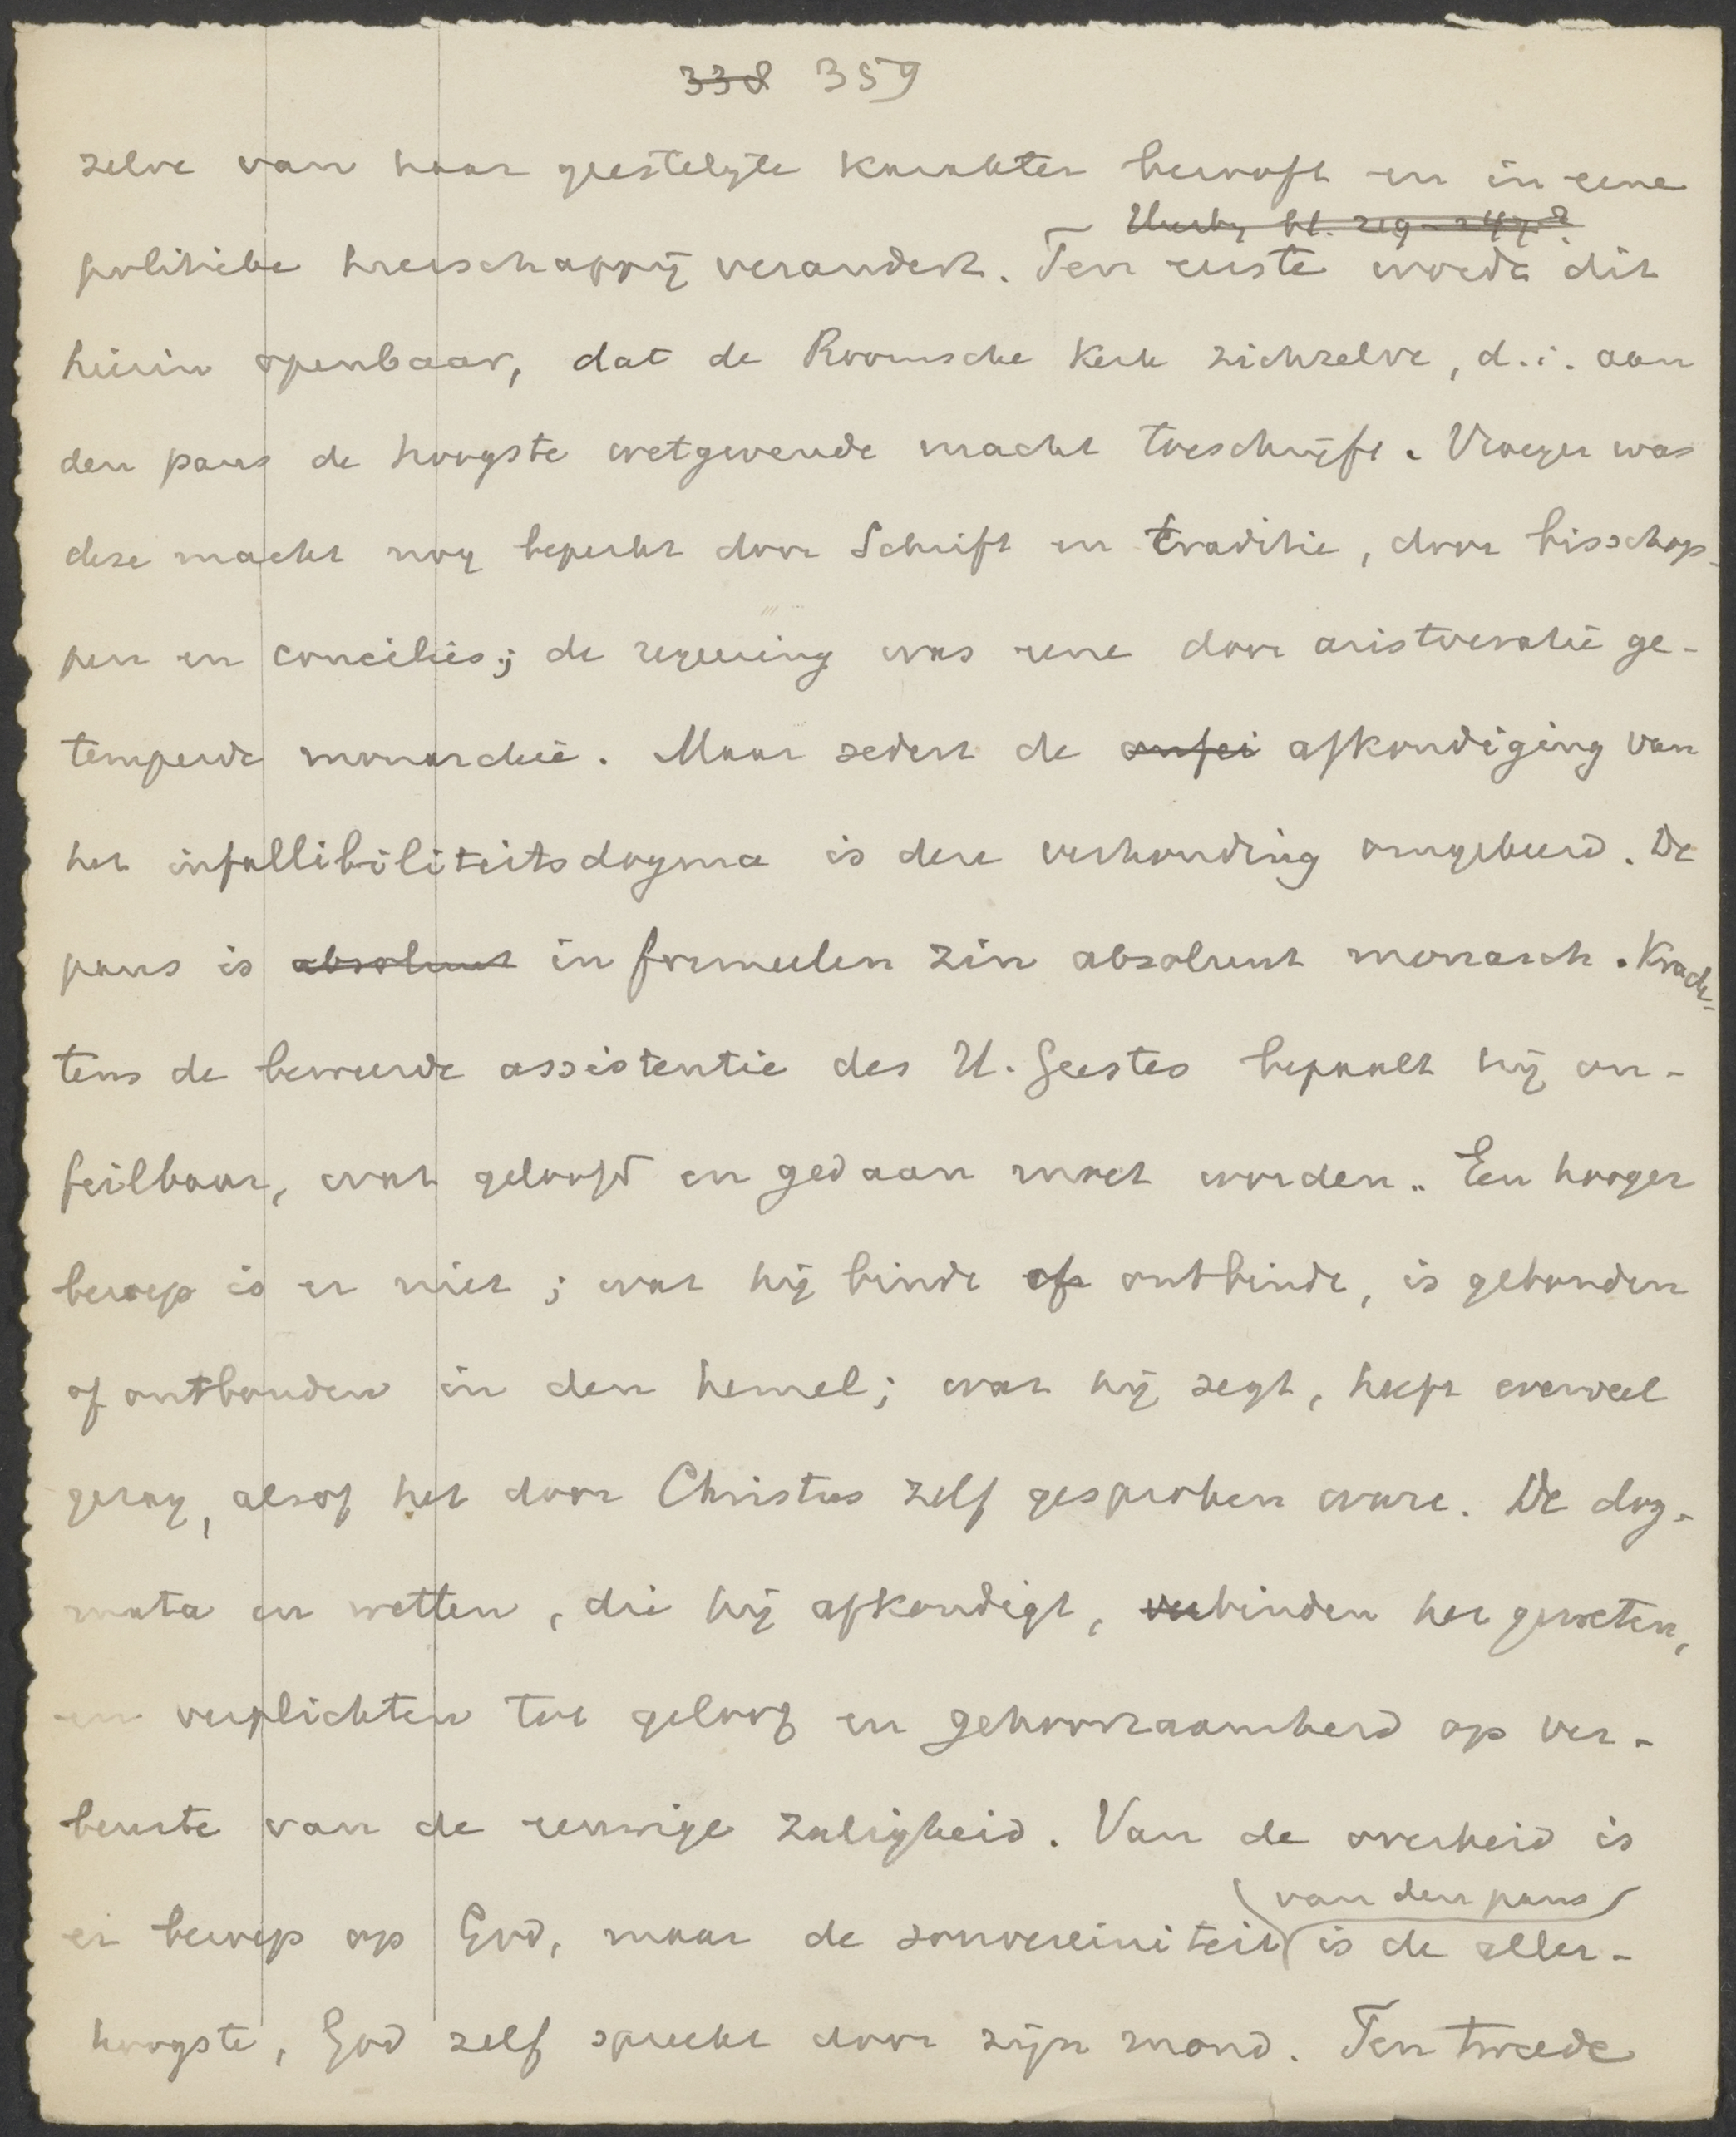 338 359
zelve van haar geestelijke karakter beroofd en in eene
bl. 219-247
politieke heerschappij veranderd. Ten eerste wordt dit
hierin openbaar, dat de Roomsche kerk zichzelve, d.i. aan
den paus de hoogste wetgevende macht toeschrijft. Vroeger was
deze macht nog beperkt door Schrift en traditie, door bisschop-
pen en conciliës; de regeering was eene door aristocratie ge-
temperde monarchie. Maar sedert de onfei afkondiging van
het infallibiliteitsdogma is deze verhouding omgekeerd. De
paus is absoluut in formeelen zin absoluut monarch. Krach-
tens de beweerde assistentie des H. Geestes bepaalt hij on-
feilbaar, wat geloofd en gedaan moet worden. Een hooger
beroep is er niet; wat hij binde of ontbinde, is gebonden
of ontbonden in den hemel; wat hij zegt, heeft evenveel
gezag, alsof het door Christus zelf gesproken ware. De dog-
mata en wetten, die hij afkondigt, verbinden het geweten,
en verplichten tot geloof en gehoorzaamheid op ver-
beurte van de eeuwige zaligheid. Van de overheid is
van den paus
er beroep op God, maar de souvereiniteit is de aller-
hoogste, God zelf spreekt door zijn mond. Ten tweede